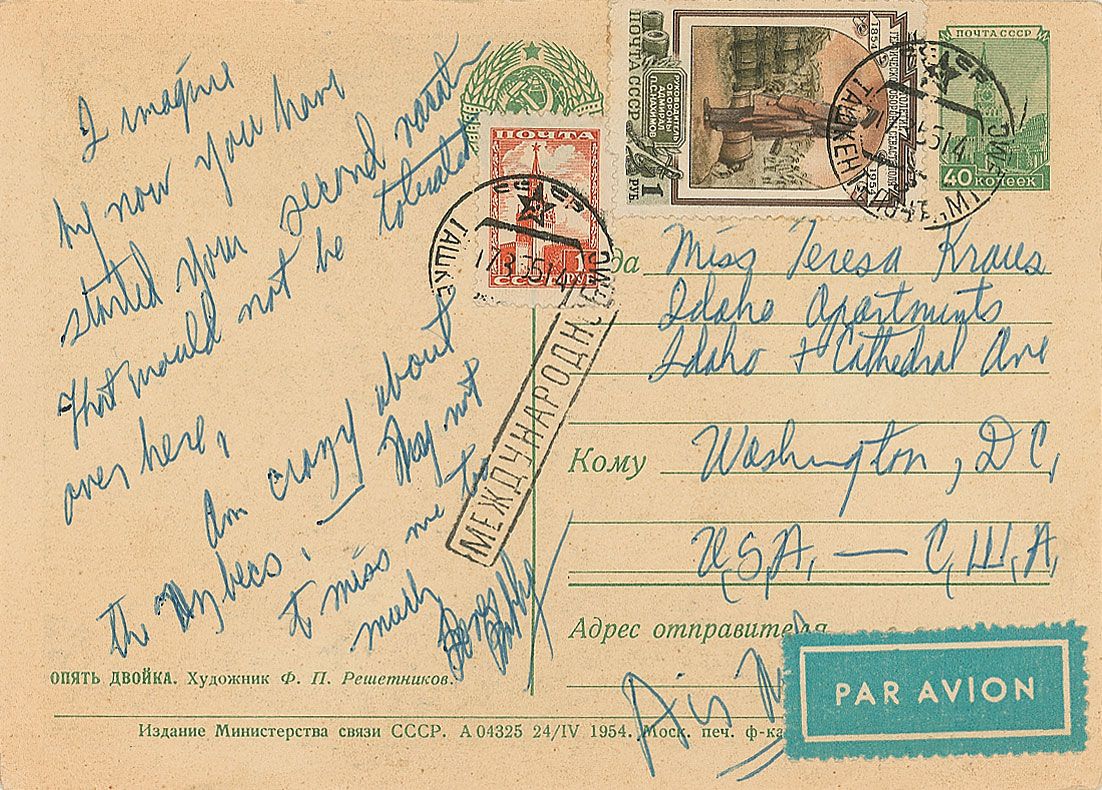 I imagine
by now you have
started your second vacation
That would not be tolerated
over here,
Am crazy about
the Uzbecs. Try not
to miss me too
much
ПОЧТА
1
СССР РУБ
ПОЧТА СССР
РУКОВОДИТЕЛЬ
ОБОРОНЫ
АДМИРАЛ
П.С. НАХИМОВ
1 РУБ
1854
1954
ПОЧТА СССР
40 копеек
СССР
ТАШКЕНТ
17 3 55 14
МЕЖДУНАРОДН
Куда
Miss Teresa Kraus
Idaho Apartments
Idaho + Cathedral Ave
Кому
Washington, DC,
U,S,A, — С,Ш,А,
Адрес отправителя
Air
PAR AVION
ОПЯТЬ ДВОЙКА. Художник Ф. П. Решетников.
Издание Министерства связи СССР. А 04325 24/IV 1954. Моск. печ. ф-ка